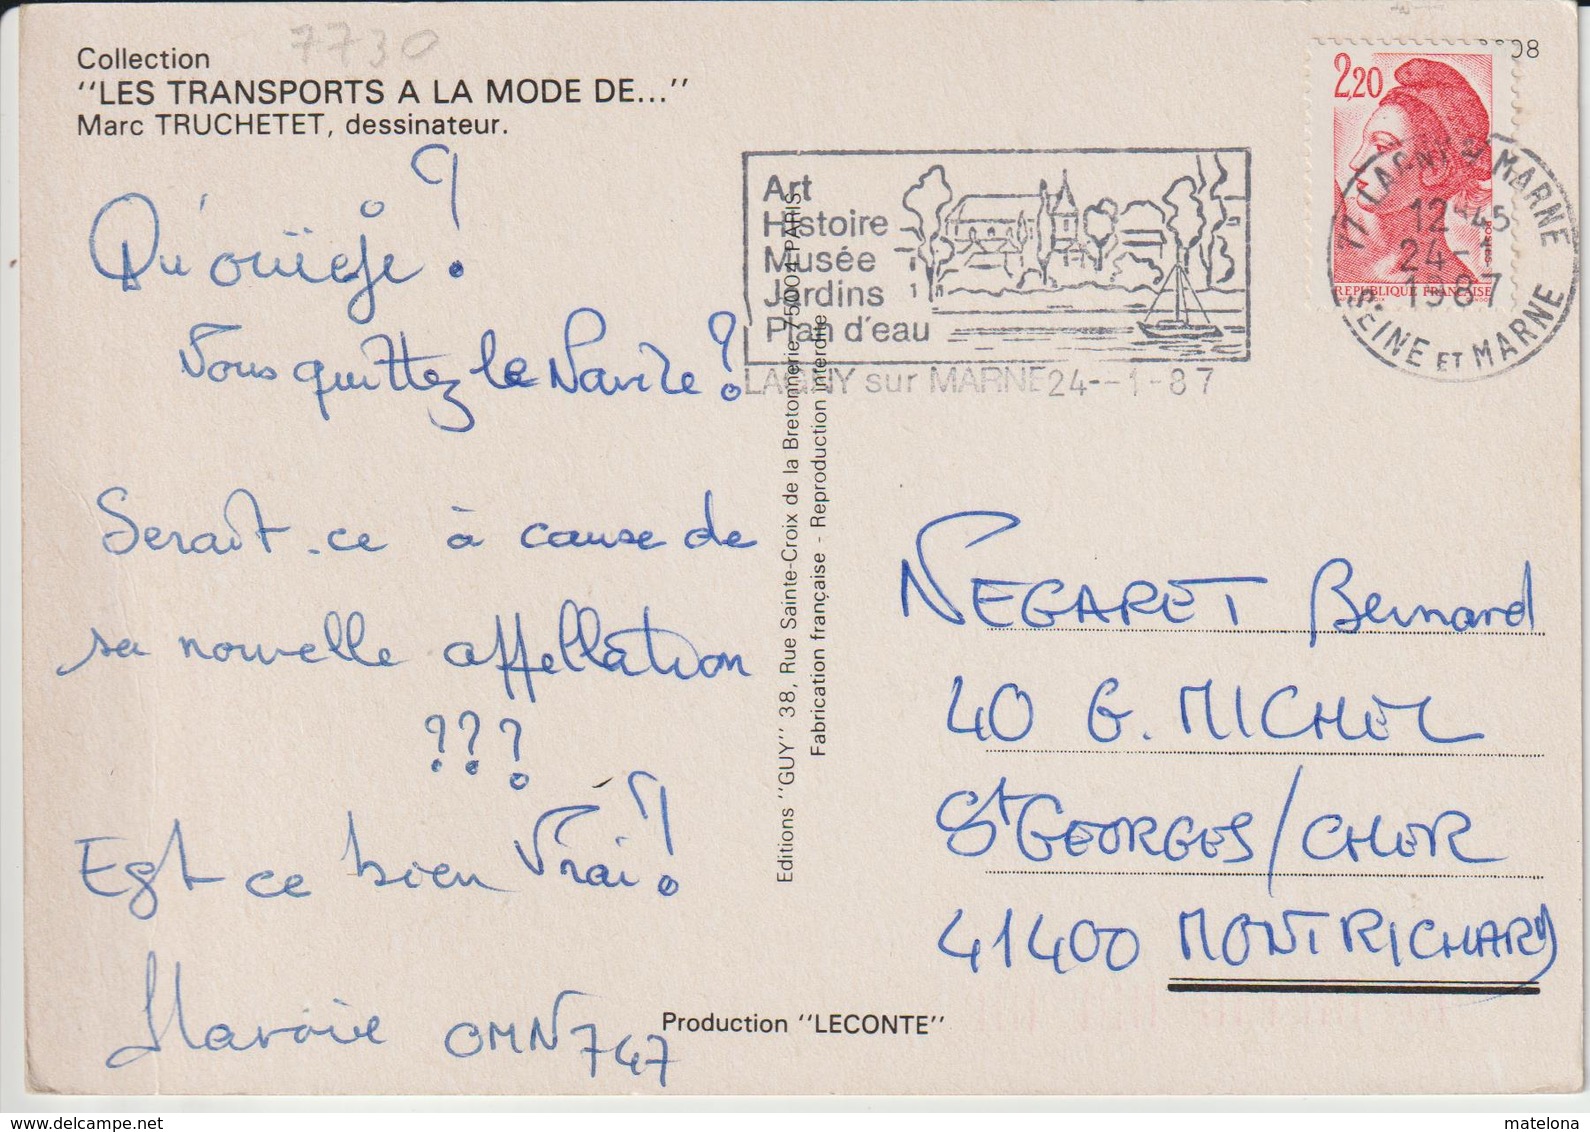 7730
Collection
"LES TRANSPORTS A LA MODE DE..."
Marc TRUCHETET, dessinateur.
Qu'ouïeje ?!
Vous quittez le Navire ?!
Serait-ce à cause de
sa nouvelle appellation
???
Est ce bien Vrai ?!
OMN 747
Art
Histoire
Musée
Jardins
Plan d'eau
LAGNY sur MARNE 24--1-87
2,20
REPUBLIQUE FRANÇAISE
77 LAGNY S/ MARNE
12H45
24-1
1987
SEINE ET MARNE
08
Editions "GUY" 38, Rue Sainte-Croix de la Bretonnerie 75004 PARIS
Fabrication française - Reproduction interdite
NEGARET Bernard
40 G. MICHEL
St GEORGES/CHER
41400 MONTRICHARD
Production "LECONTE"
www.delcampe.net
matelona